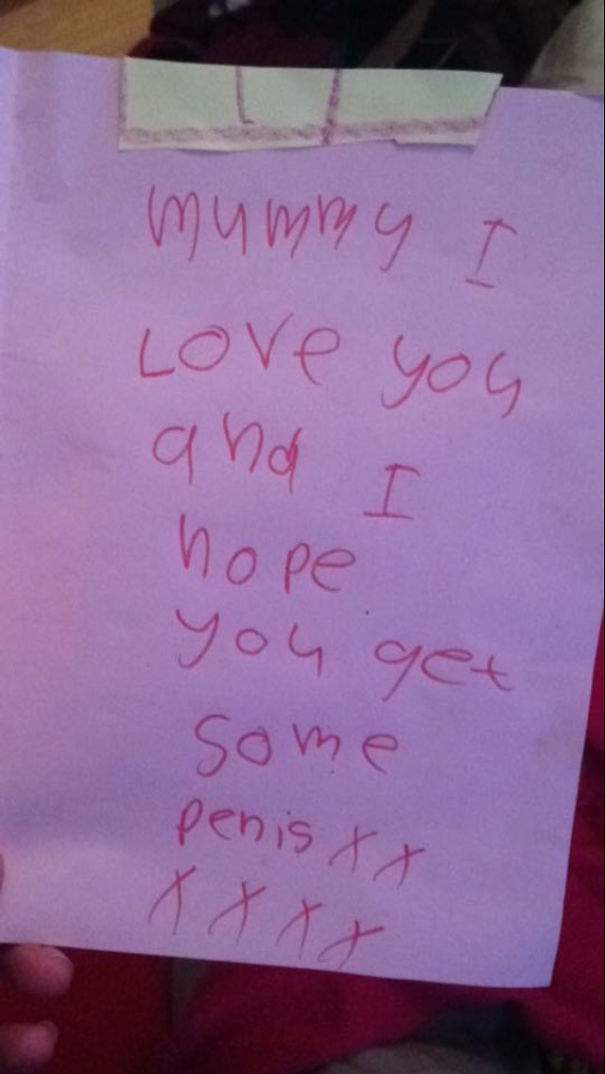 mummy I
Love you
and I
hope
you get
some
penis xx
xxxx